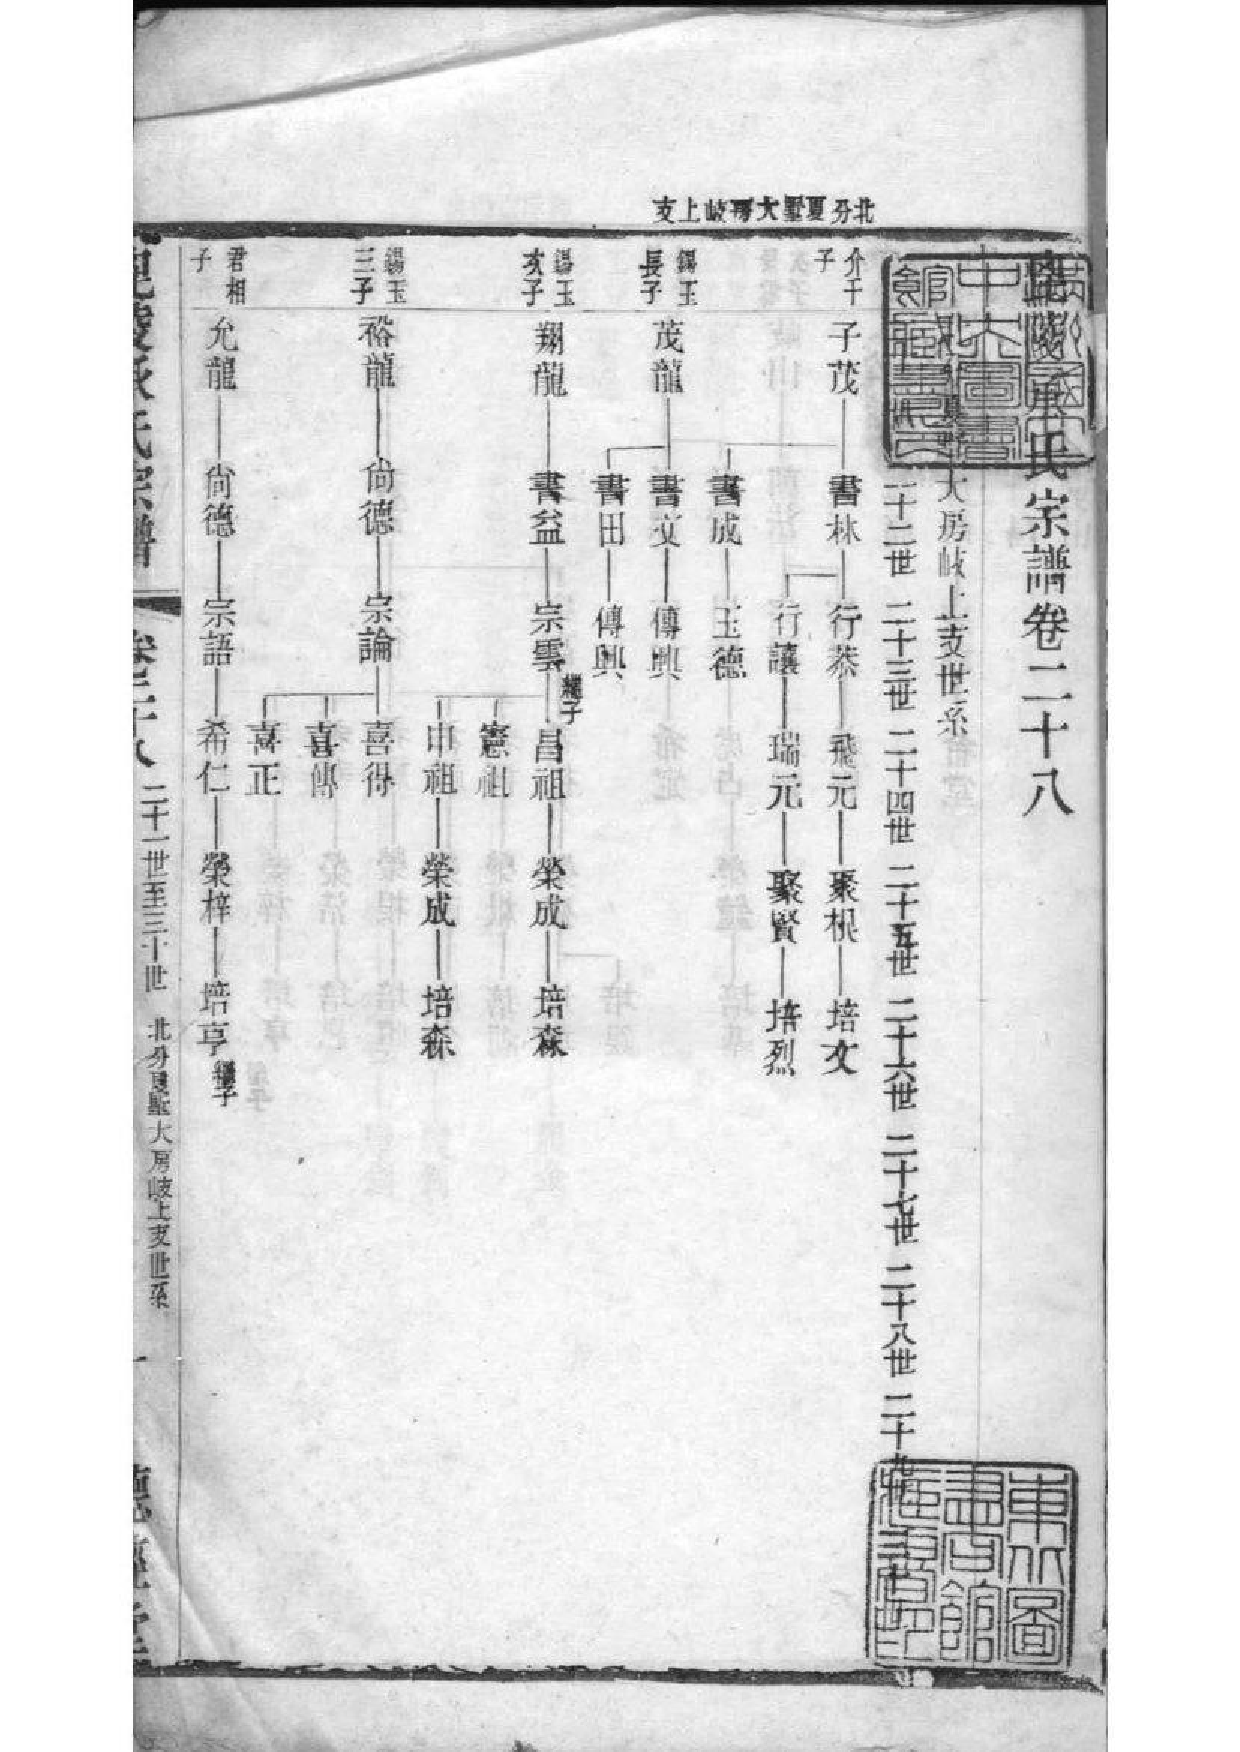 北分夏墅大房岐上支
毘陵承氏宗譜卷二十八
大房岐上支世系
二十二世 二十三世 二十四世 二十五世 二十六世 二十七世 二十八世 二十九世 三十世
介千子 子茂 書林 行恭 飛元 聚根 培文
行讓 瑞元 聚賢 培烈
書成 玉德
錫玉長子 茂龍 書文 傳興
書田 傳興
錫玉次子 翔龍 書益 宗雲 繼子 昌祖 榮成 培森
憲祖
申祖 榮成 培森
錫玉三子 裕龍 尙德 宗論 喜得
喜傳
喜正
君相子 允龍 尙德 宗語 希仁 榮梓 培亨 繼子
毘陵承氏宗譜 卷二十八 二十一世至三十世 北分夏墅大房岐上支世系 一